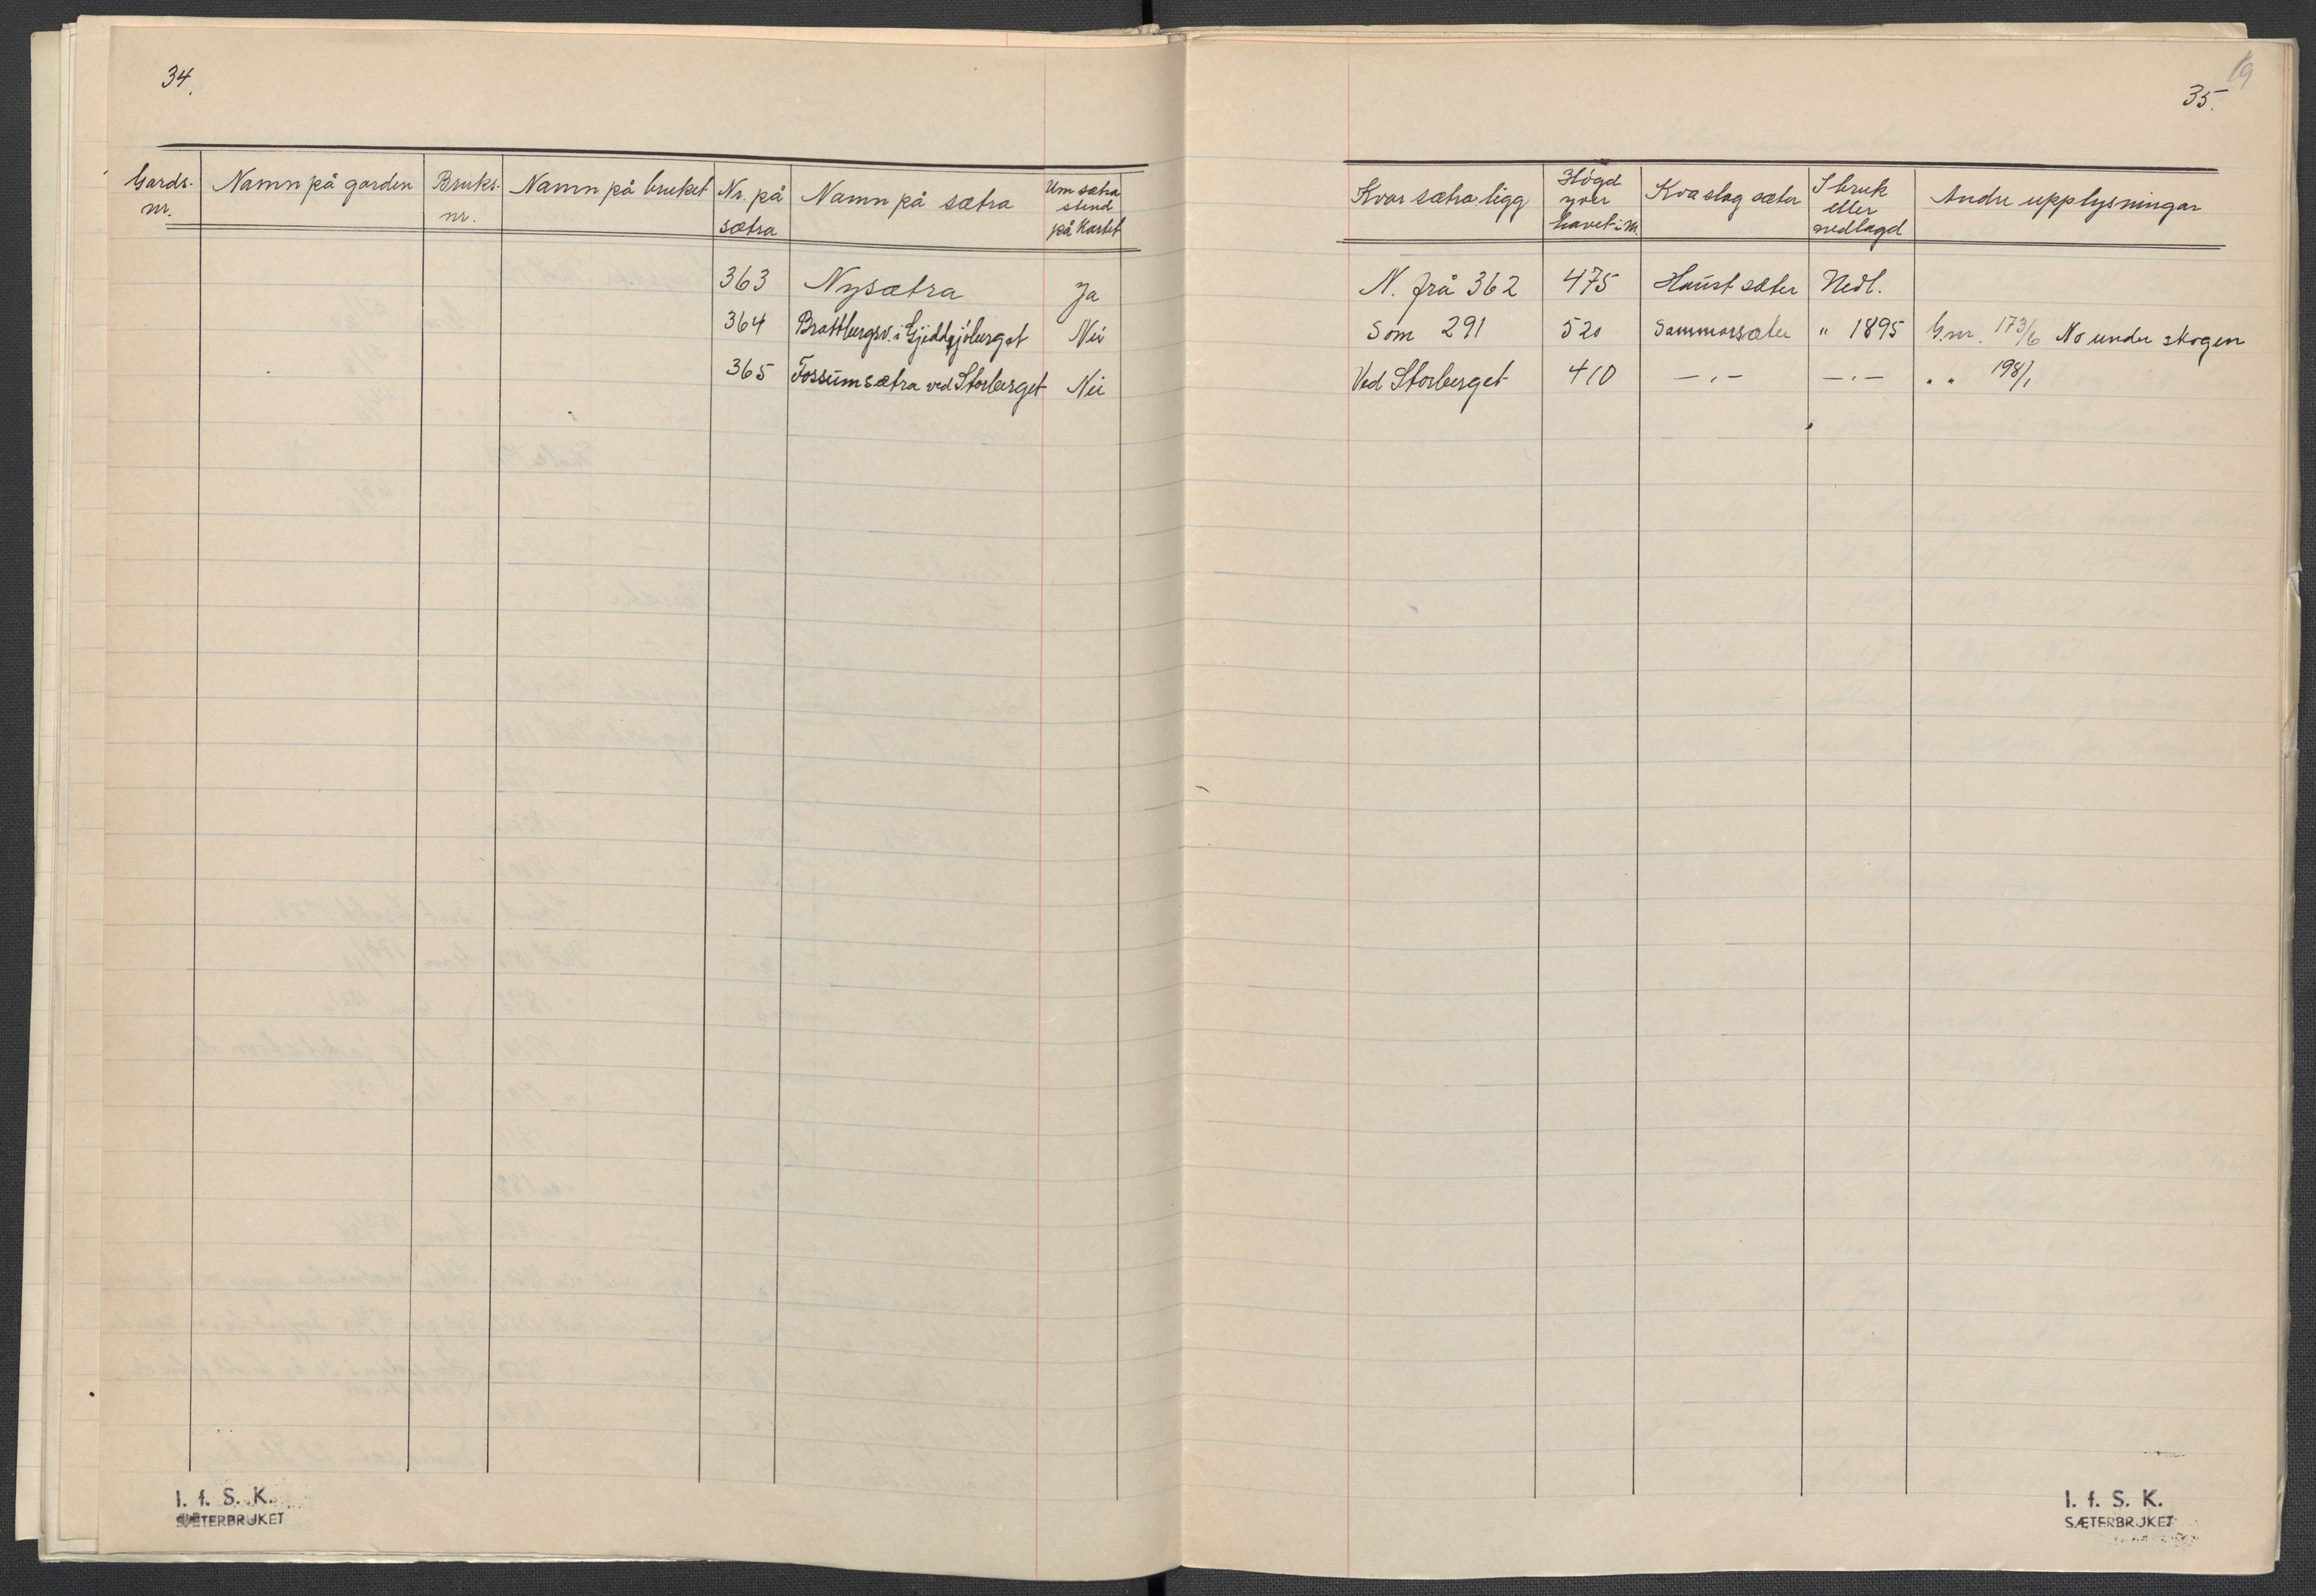 34.
Gards-nr. Namn på garden Bruks-nr. Namn på bruket Nr. på sætra Namn på sætra Um sætra stend på Kartet
363 Nysætra Ja
364 Brattbergsv. i Gjeddtjöberget Nei
365 Fossumsætra ved Storberget Nei
I. f. S. K.
SÆTERBRUKET
19
35.
Kvar sætra ligg Högd yver havet i M. Kva slag sæter I bruk eller nedlagd Andre upplysningar
N. frå 362 475 Haustsæter Nedl.
Som 291 520 Sommarsæter " 1895 G.nr. 173/6 No under skogen
Ved Storberget 410 —"— —"— " " 198/1
I. f. S. K.
SÆTERBRUKET